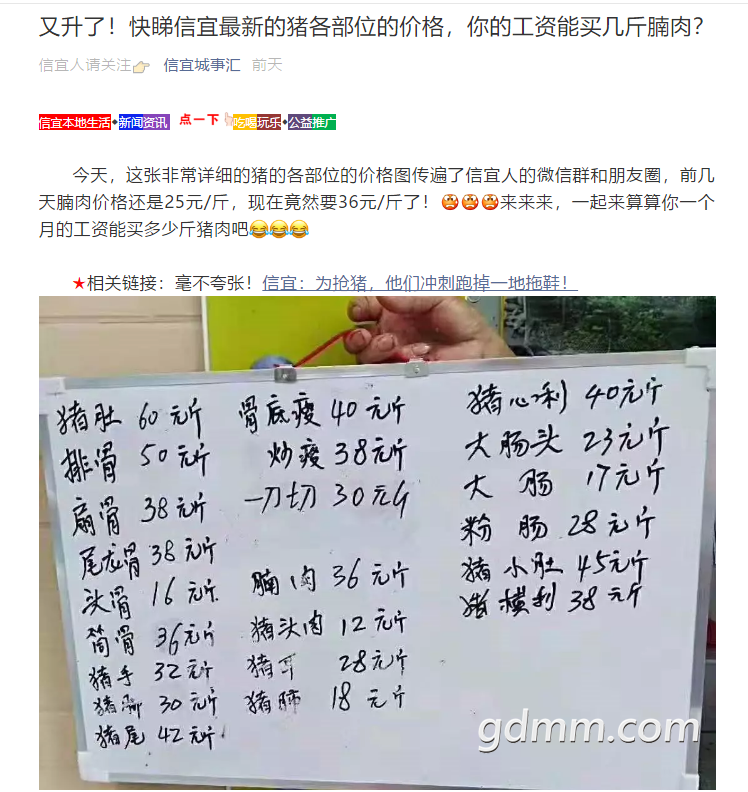 又升了！快睇信宜最新的猪各部位的价格，你的工资能买几斤腩肉？
信宜人请关注👉 信宜城事汇 前天
信宜本地生活◆新闻资讯 点一下 吃喝玩乐◆公益推广
今天，这张非常详细的猪的各部位的价格图传遍了信宜人的微信群和朋友圈，前几
天腩肉价格还是25元/斤，现在竟然要36元/斤了！😡😡😡来来来，一起来算算你一个
月的工资能买多少斤猪肉吧😂😂😂
★相关链接：毫不夸张！信宜：为抢猪，他们冲刺跑掉一地拖鞋！
猪肚 60元斤
排骨 50元斤
扇骨 38元斤
尾龙骨 38元斤
头骨 16元斤
筒骨 36元斤
猪手 32元斤
猪 30元斤
猪尾 42元斤
骨底瘦 40元斤
炒瘦 38元斤
一刀切 30元斤
腩肉 36元斤
猪头肉 12元斤
猪耳 28元斤
猪肺 18元斤
猪心利 40元斤
大肠头 23元斤
大肠 17元斤
粉肠 28元斤
猪小肚 45元斤
猪横利 38元斤
gdmm.com